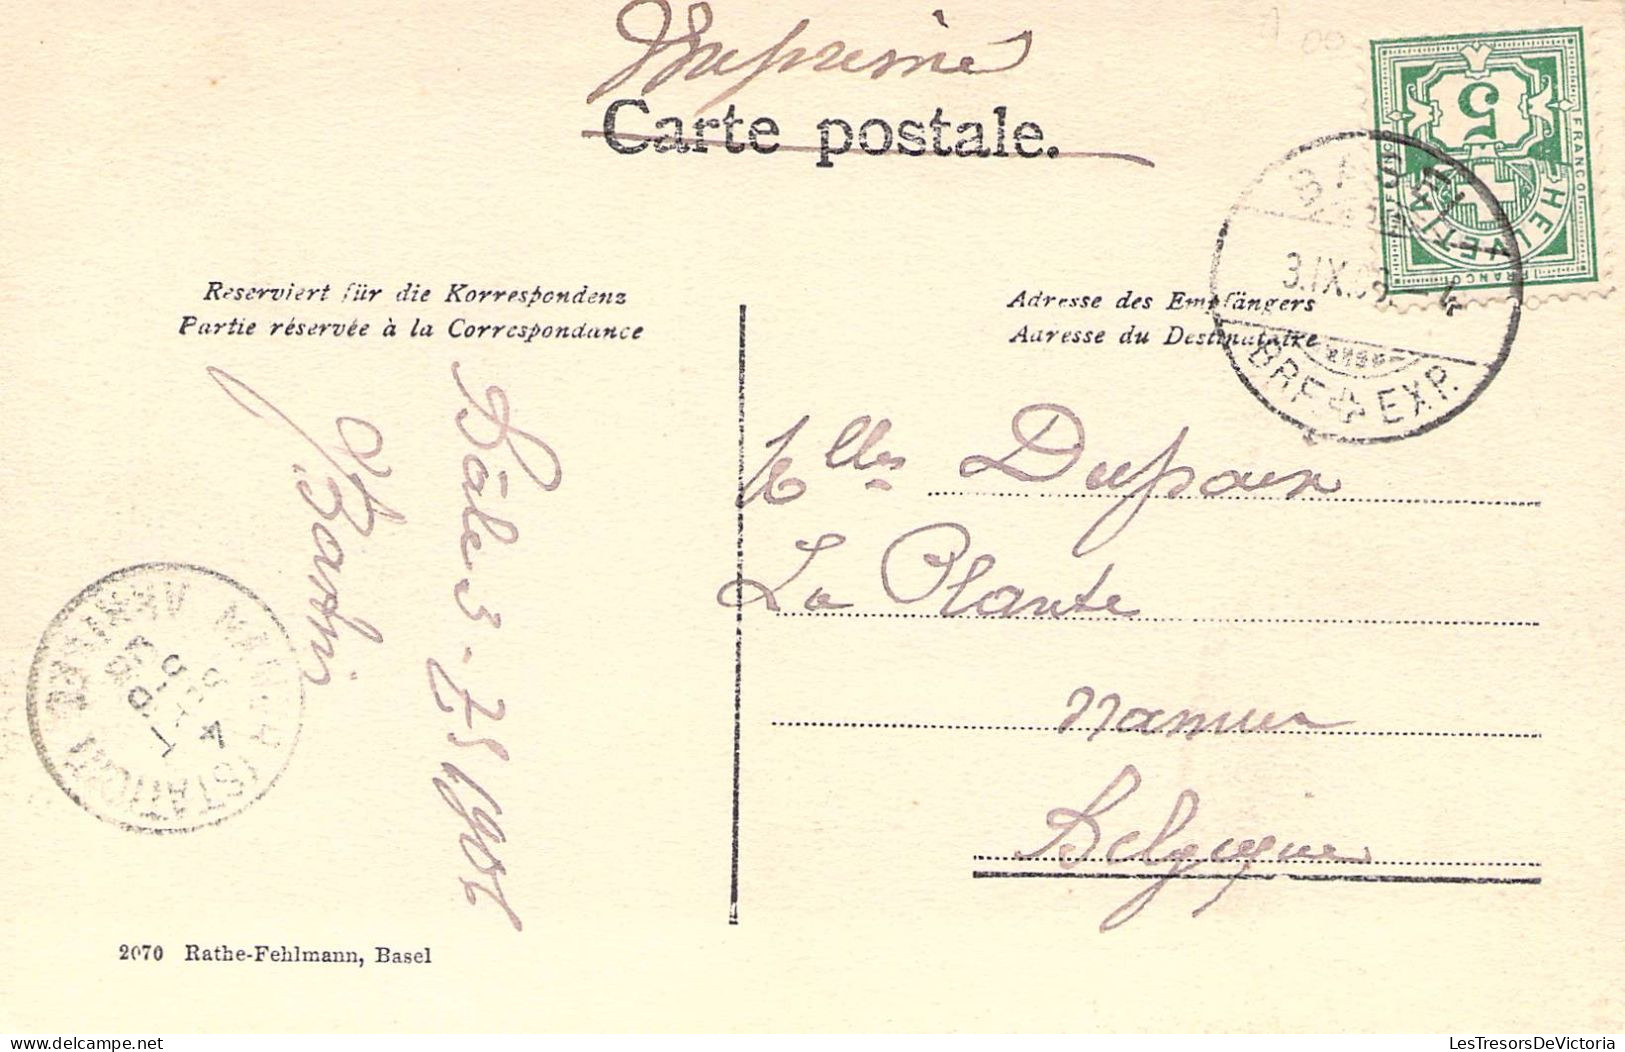 Imprimé
Carte postale.
5
FRANCO
HELVETIA
FRANCO
BASEL
3.IX.06.
BRF. EXP.
Reserviert für die Korrespondenz
Partie réservée à la Correspondance
Adresse des Empfängers
Adresse du Destinataire
Bâle 3-7S 1906
Melles Dupaix
La Plante
Namur
Belgique
NAMUR (STATION)
4
2070 Rathe-Fehlmann, Basel
LesTresorsDeVictoria